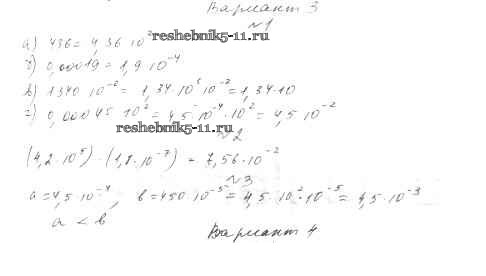 Вариант 3
№1
а) 436 = 4,36·10²
reshebnik5-11.ru
б) 0,00019 = 1,9·10⁻⁴
в) 1340·10⁻² = 1,34·10³·10⁻² = 1,34·10
г) 0,00045·10² = 4,5·10⁻⁴·10² = 4,5·10⁻²
reshebnik5-11.ru
№2
(4,2·10⁵)·(1,8·10⁻⁷) = 7,56·10⁻²
№3
a = 4,5·10⁻⁴, b = 450·10⁻⁵ = 4,5·10²·10⁻⁵ = 4,5·10⁻³
a < b
Вариант 4